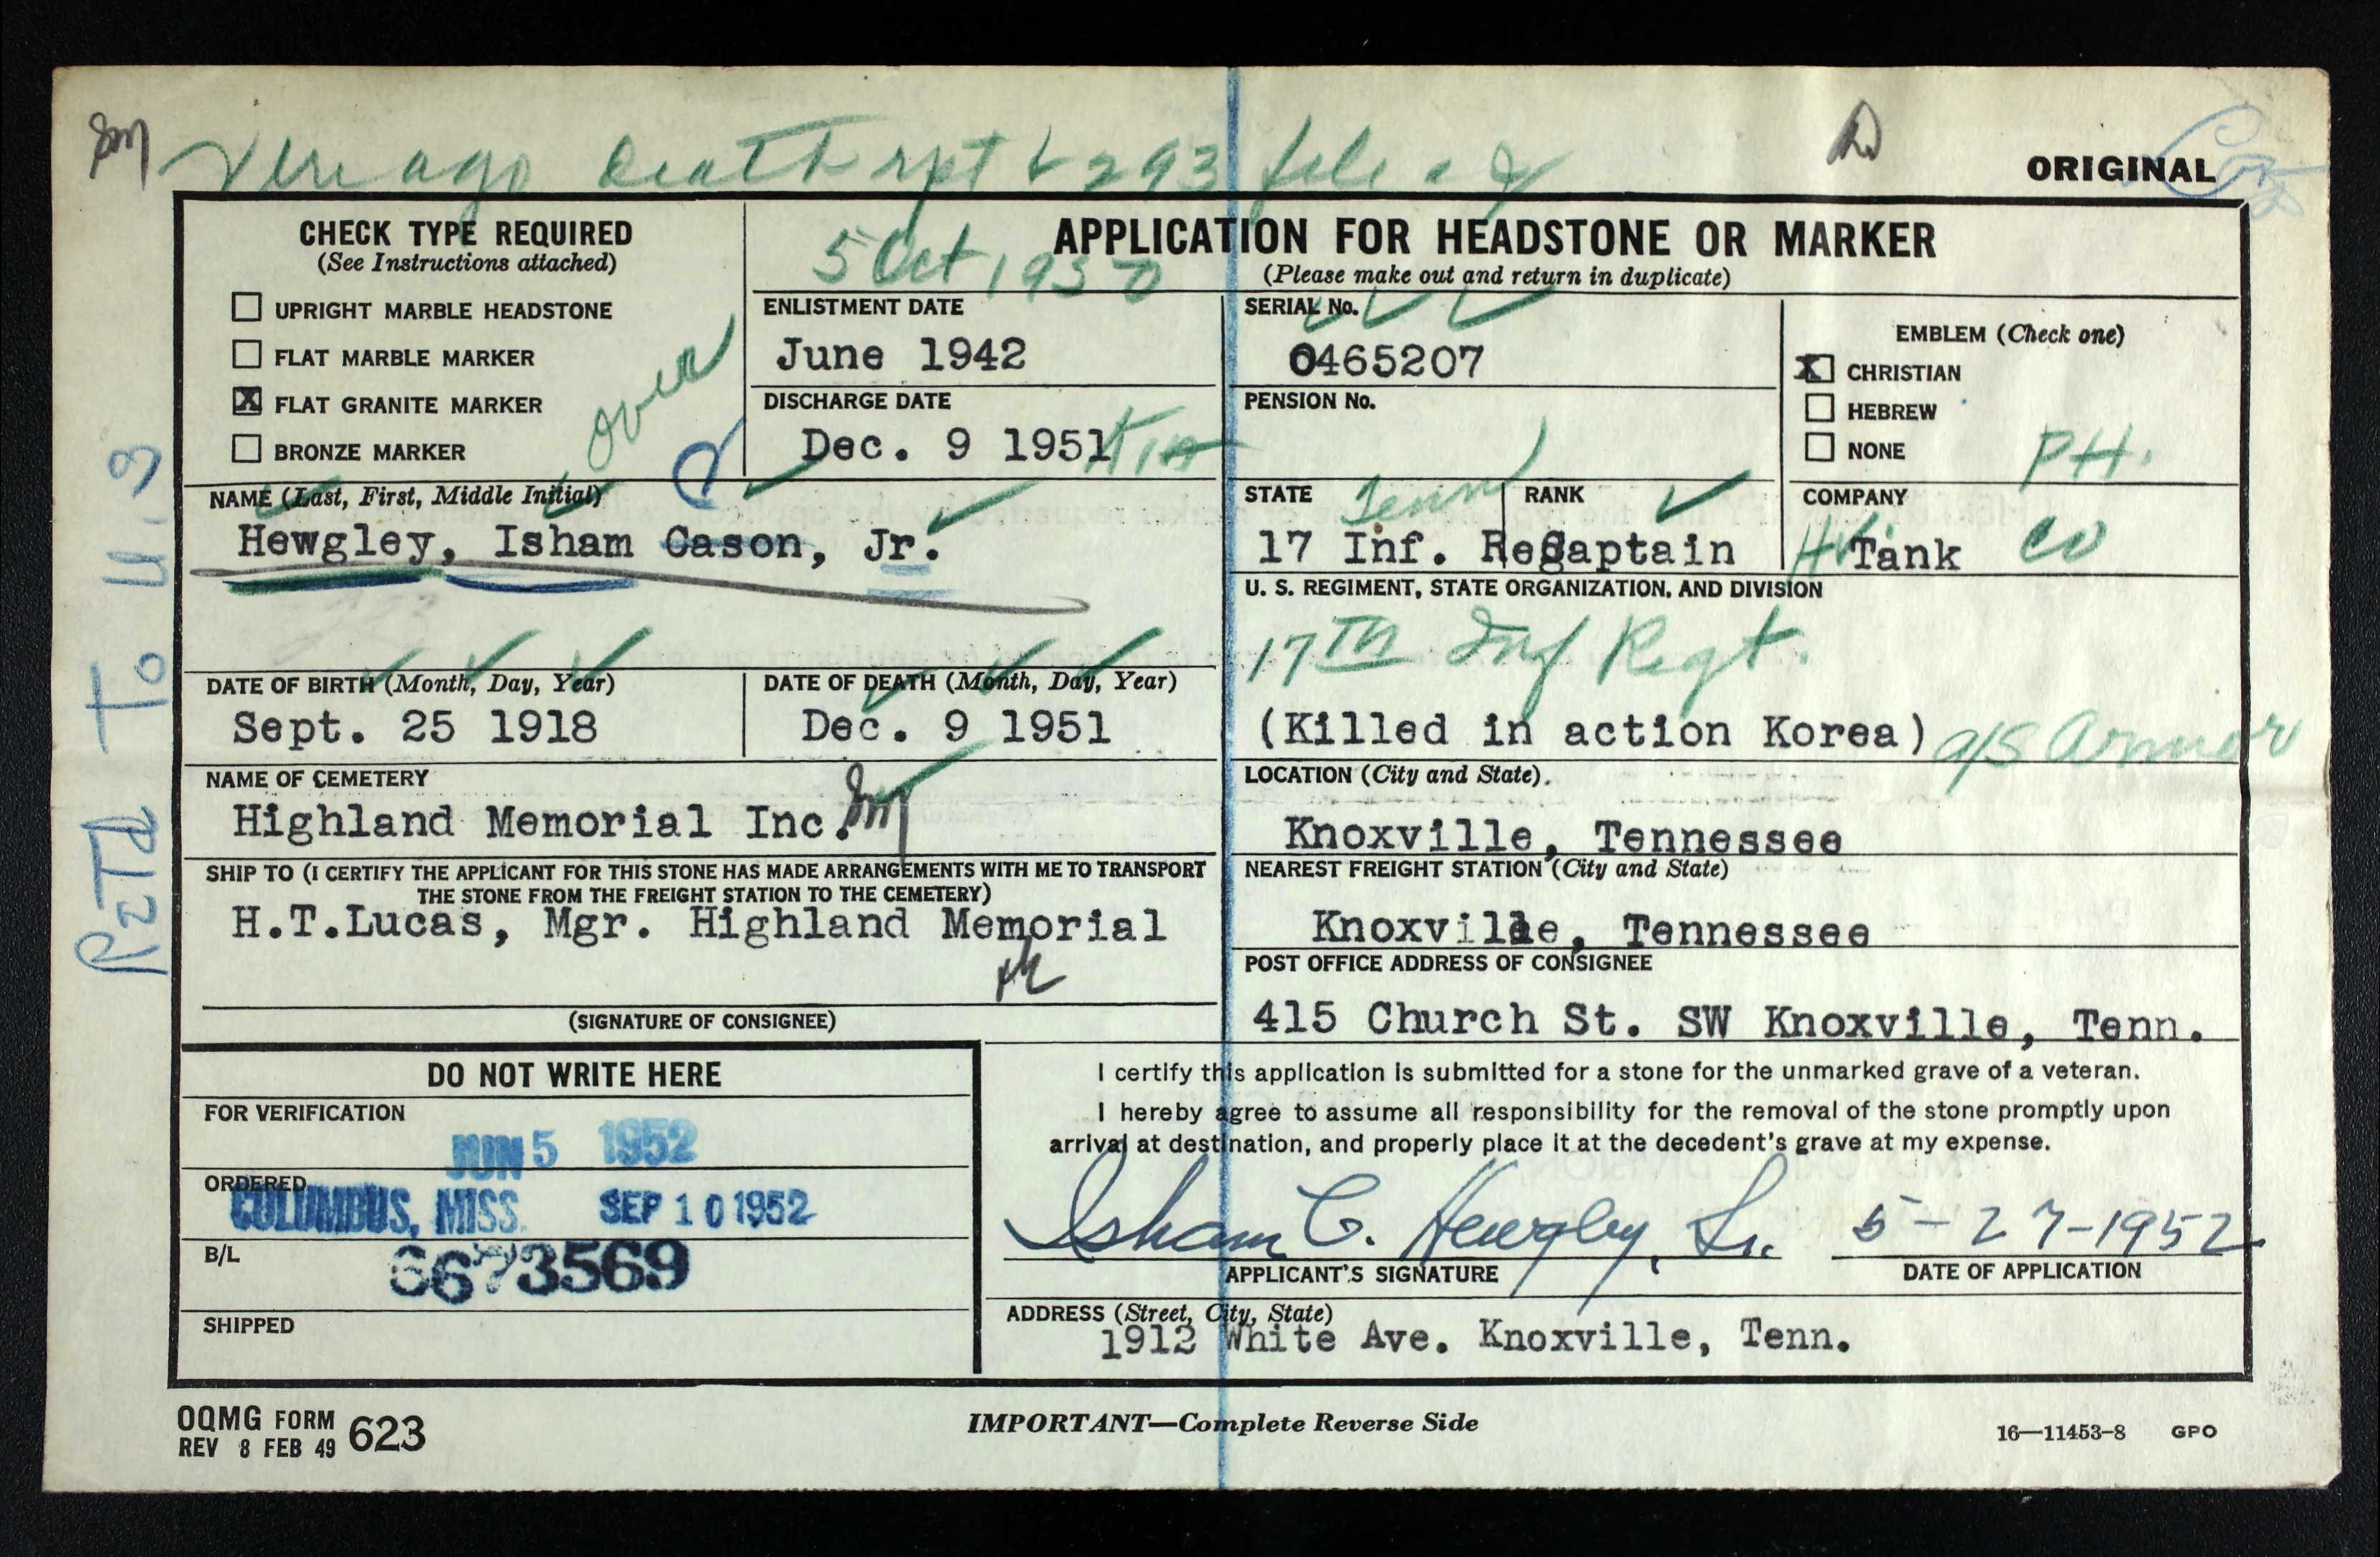 death rpt & 293 file
ORIGINAL
CHECK TYPE REQUIRED
(See Instructions attached)
UPRIGHT MARBLE HEADSTONE
FLAT MARBLE MARKER
X FLAT GRANITE MARKER
BRONZE MARKER
over
5 Oct 1950
APPLICATION FOR HEADSTONE OR MARKER
(Please make out and return in duplicate)
ENLISTMENT DATE
June 1942
DISCHARGE DATE
Dec. 9 1951
SERIAL No.
0465207
PENSION No.
EMBLEM (Check one)
X CHRISTIAN
HEBREW
NONE
PH.
NAME (Last, First, Middle Initial)
Hewgley, Isham Cason, Jr.
STATE Tenn
RANK
17 Inf. Re Captain
COMPANY
Hv. Tank Co
U. S. REGIMENT, STATE ORGANIZATION, AND DIVISION
17TH Inf Regt.
(Killed in action Korea) a/s Armor
DATE OF BIRTH (Month, Day, Year)
Sept. 25 1918
DATE OF DEATH (Month, Day, Year)
Dec. 9 1951
NAME OF CEMETERY
Highland Memorial Inc.
LOCATION (City and State).
Knoxville, Tennessee
SHIP TO (I CERTIFY THE APPLICANT FOR THIS STONE HAS MADE ARRANGEMENTS WITH ME TO TRANSPORT
THE STONE FROM THE FREIGHT STATION TO THE CEMETERY)
H.T.Lucas, Mgr. Highland Memorial
(SIGNATURE OF CONSIGNEE)
NEAREST FREIGHT STATION (City and State)
Knoxville, Tennessee
POST OFFICE ADDRESS OF CONSIGNEE
415 Church St. SW Knoxville, Tenn.
DO NOT WRITE HERE
FOR VERIFICATION
JUN 5 1952
ORDERED
COLUMBUS, MISS. SEP 10 1952
B/L
6673569
SHIPPED
I certify this application is submitted for a stone for the unmarked grave of a veteran.
I hereby agree to assume all responsibility for the removal of the stone promptly upon
arrival at destination, and properly place it at the decedent's grave at my expense.
Isham C. Hewgley, Sr. 5-27-1952
APPLICANT'S SIGNATURE
DATE OF APPLICATION
ADDRESS (Street, City, State)
1912 White Ave. Knoxville, Tenn.
OQMG FORM 623
REV 8 FEB 49
IMPORTANT—Complete Reverse Side
16—11453-8 GPO